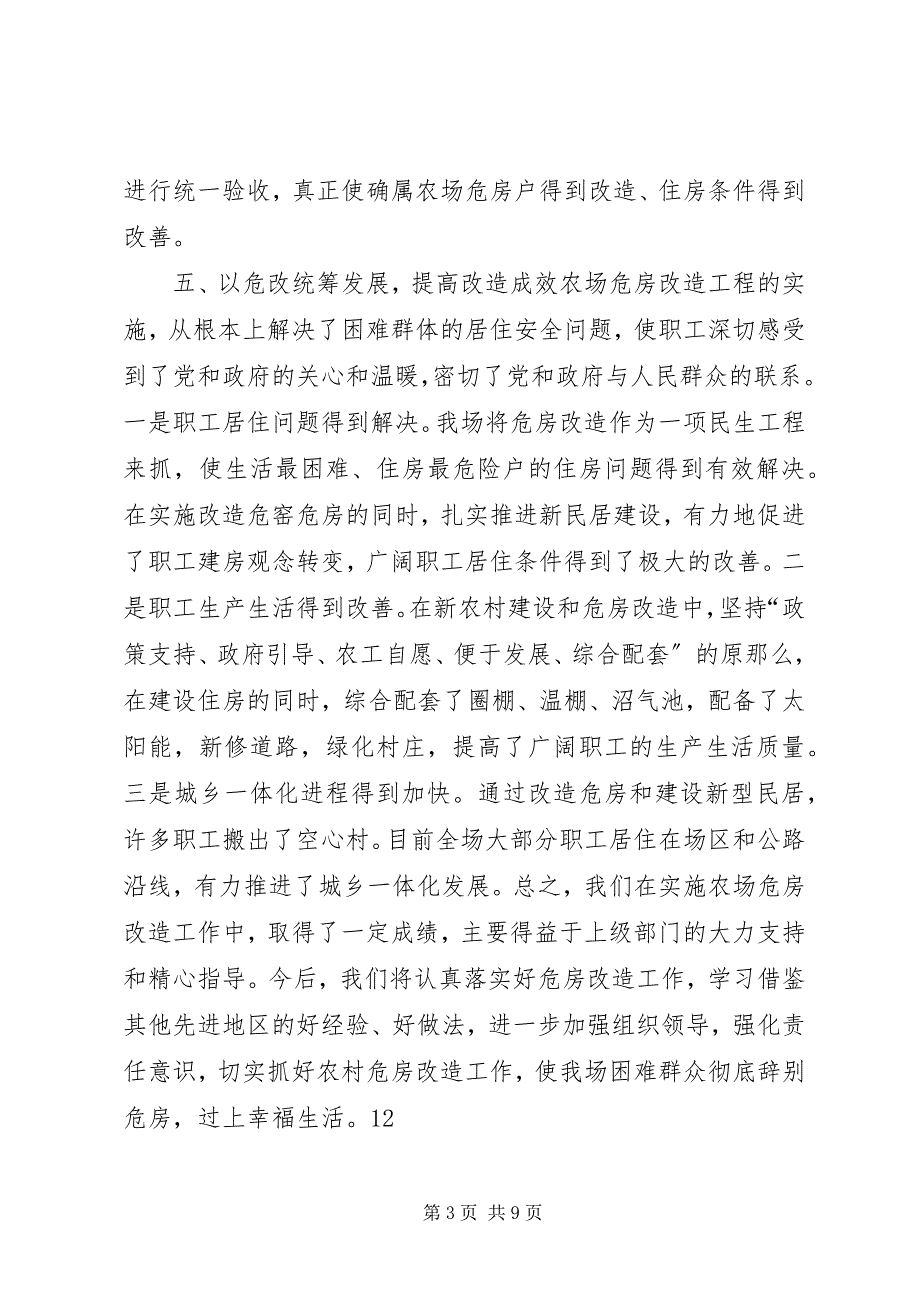 进行统一验收，真正使确属农场危房户得到改造、住房条件得到
改善。
五、以危改统筹发展，提高改造成效农场危房改造工程的实
施，从根本上解决了困难群体的居住安全问题，使职工深切感受
到了党和政府的关心和温暖，密切了党和政府与人民群众的联系。
一是职工居住问题得到解决。我场将危房改造作为一项民生工程
来抓，使生活最困难、住房最危险户的住房问题得到有效解决。
在实施改造危窑危房的同时，扎实推进新民居建设，有力地促进
了职工建房观念转变，广阔职工居住条件得到了极大的改善。二
是职工生产生活得到改善。在新农村建设和危房改造中，坚持“政
策支持、政府引导、农工自愿、便于发展、综合配套〞的原那么，
在建设住房的同时，综合配套了圈棚、温棚、沼气池，配备了太
阳能，新修道路，绿化村庄，提高了广阔职工的生产生活质量。
三是城乡一体化进程得到加快。通过改造危房和建设新型民居，
许多职工搬出了空心村。目前全场大部分职工居住在场区和公路
沿线，有力推进了城乡一体化发展。总之，我们在实施农场危房
改造工作中，取得了一定成绩，主要得益于上级部门的大力支持
和精心指导。今后，我们将认真落实好危房改造工作，学习借鉴
其他先进地区的好经验、好做法，进一步加强组织领导，强化责
任意识，切实抓好农村危房改造工作，使我场困难群众彻底辞别
危房，过上幸福生活。12
第 3 页 共 9 页